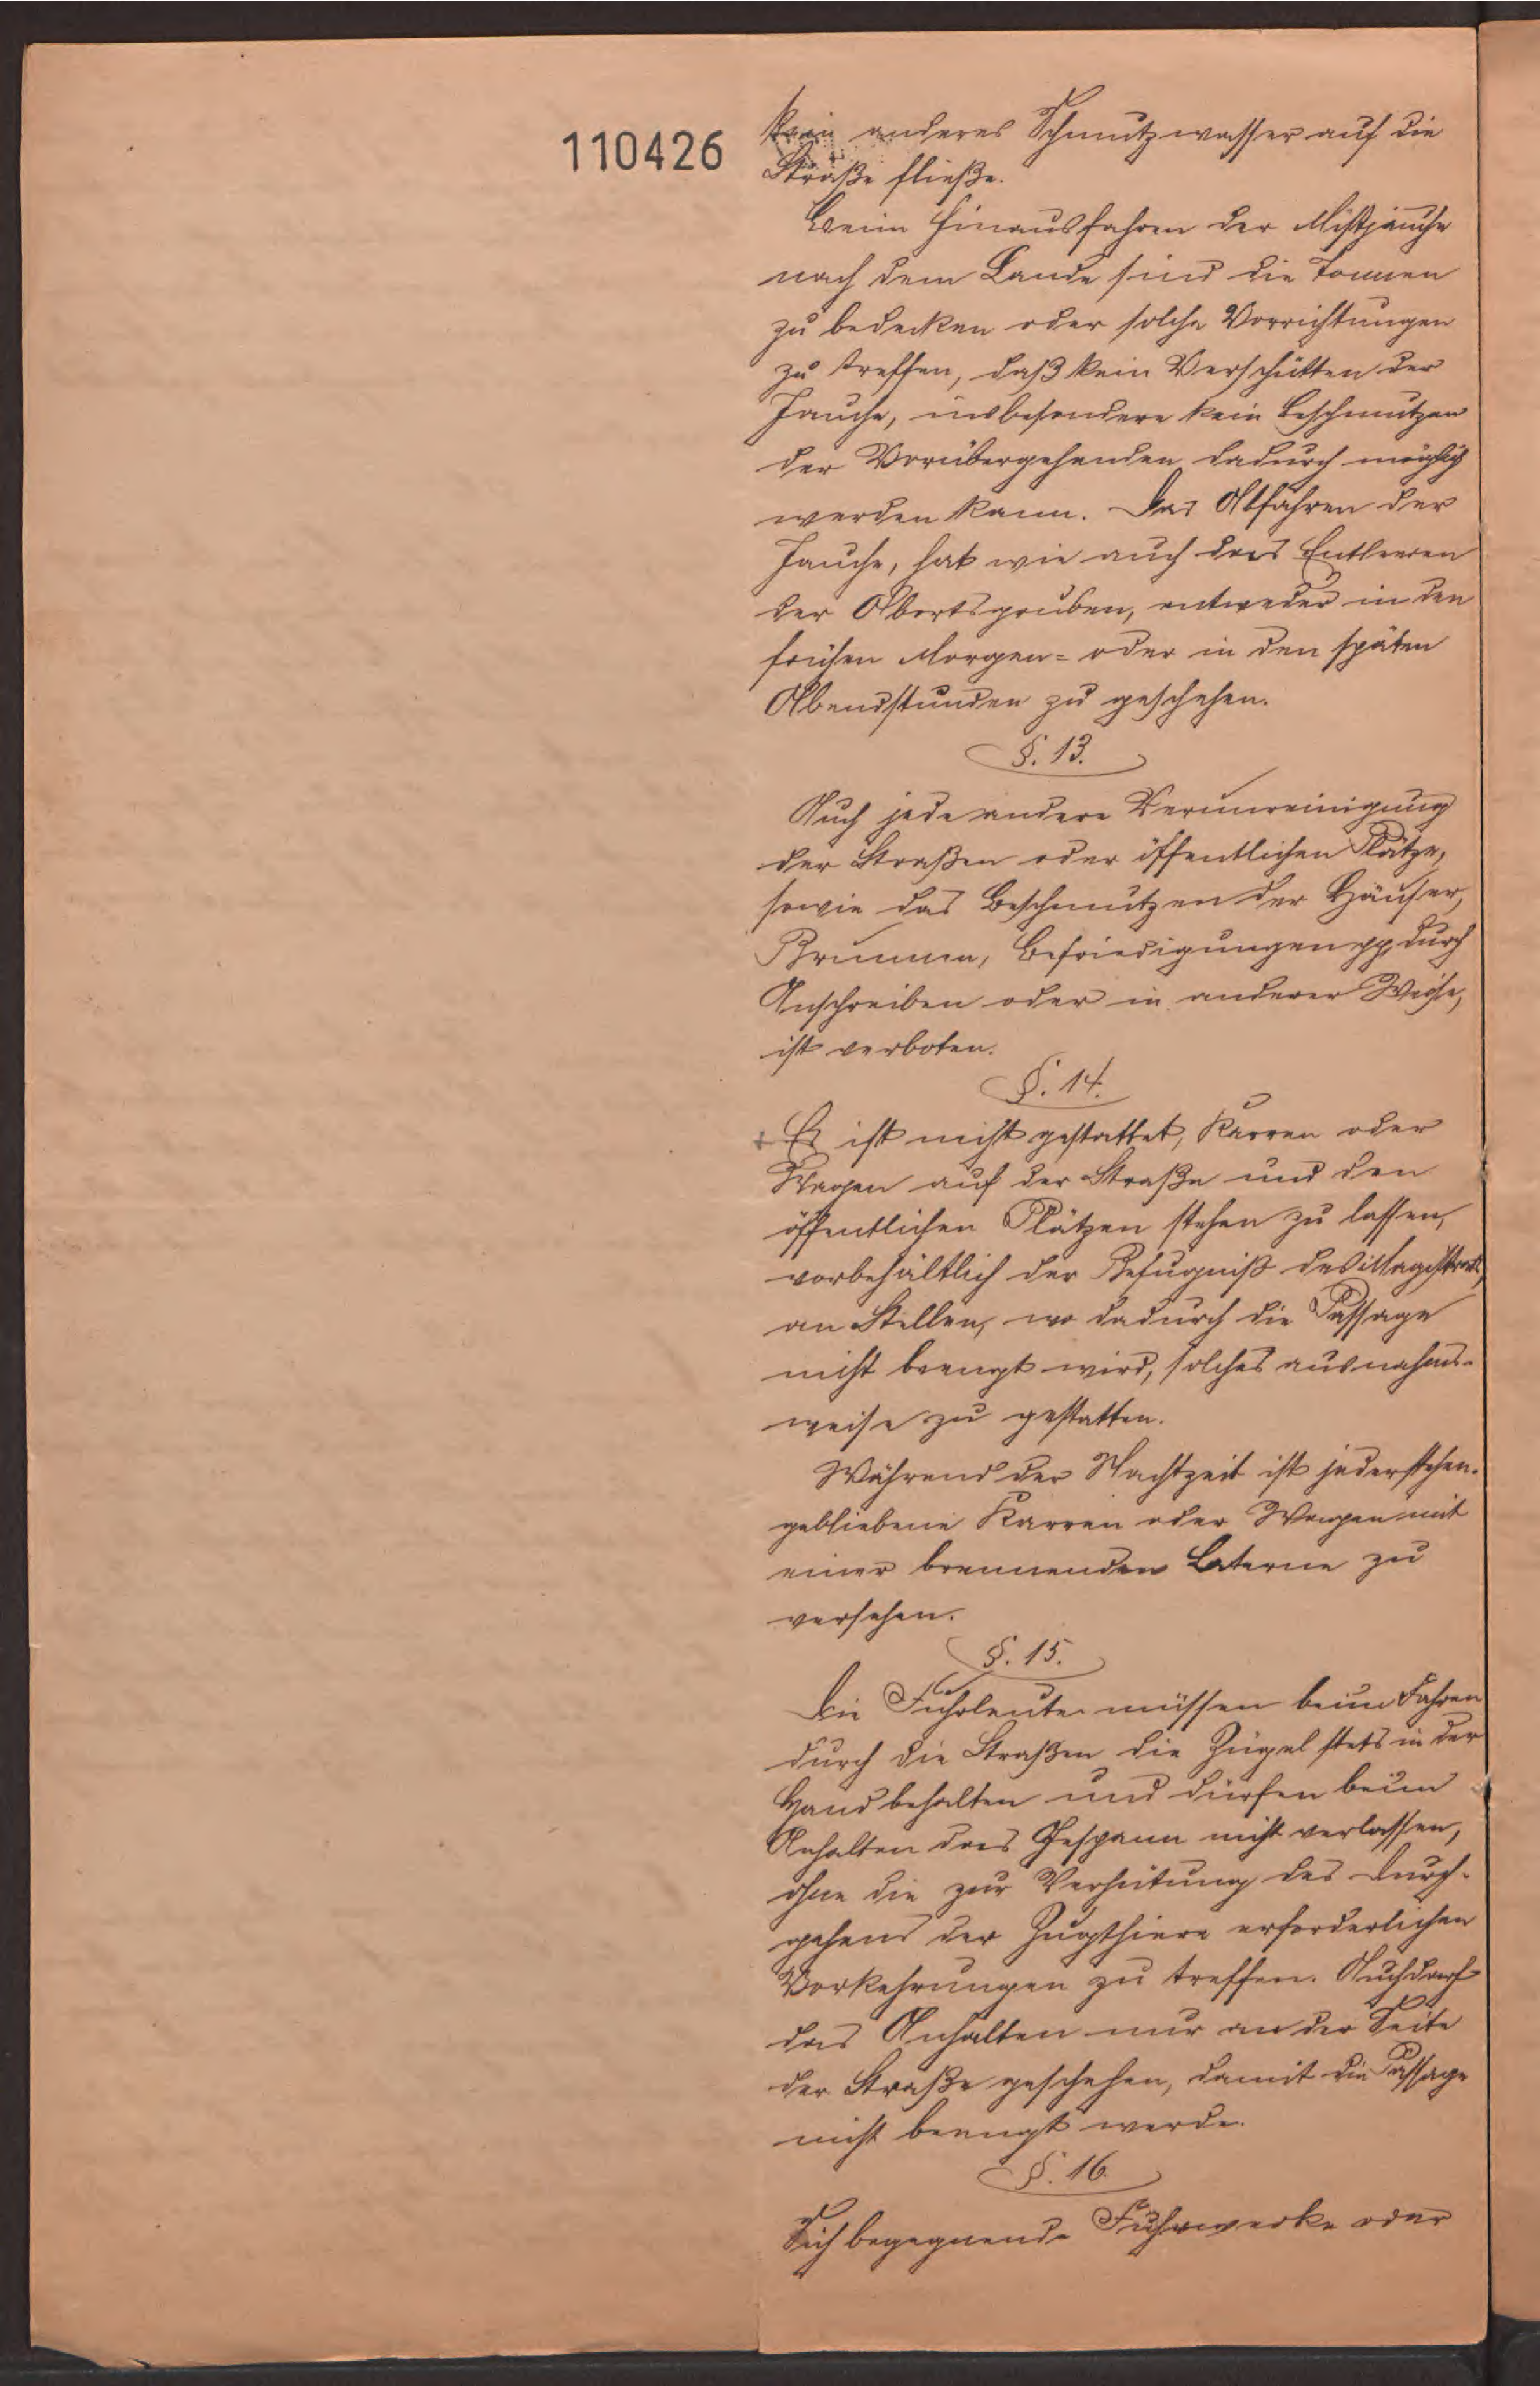 110426
kein anderes Schmutzwasser auf die
Straße fließe.
Beim Hinausfahren der Mistjauche
nach dem Lande sind die Tonnen
zu bedecken oder solche Vorrichtungen
zu treffen, daß kein Verschütten der
Jauche, insbesondere kein Beschmutzen
der Vorübergehenden dadurch möglich
werden kann. Das Abfahren der
Jauche, hat wie auch das Entleeren
der Abortsgruben, entweder in den
frühen Morgen= oder in den späten
Abendstunden zu geschehen.
§. 13.
Auch jede andere Verunreinigung
der Straßen oder öffentlichen Plätze,
sowie das Beschmutzen der Häuser,
Brunnen, Befriedigungen pp. durch
Anschreiben oder in anderer Weise,
ist verboten.
§. 14.
Es ist nicht gestattet, Karren oder
Wagen auf der Straße und den
öffentlichen Plätzen stehen zu lassen,
vorbehältlich der Befugniß des Magistrats,
an Stellen, wo dadurch die Passage
nicht beengt wird, solches ausnahms-
weise zu gestatten.
Während der Nachtzeit ist jeder stehen-
gebliebene Karren oder Wagen mit
einer brennenden Laterne zu
versehen.
§. 15.
Die Fuhrleute müssen beim Fahren
durch die Straßen die Zügel stets in der
Hand behalten und dürfen beim
Anhalten das Gespann nicht verlassen,
ohne die zur Verhütung des Durch-
gehens der Zugthiere erforderlichen
Vorkehrungen zu treffen. Auch darf
das Anhalten nur an der Seite
der Straße geschehen, damit die Passage
nicht beengt werde.
§. 16.
Sich begegnende Fuhrwerke oder